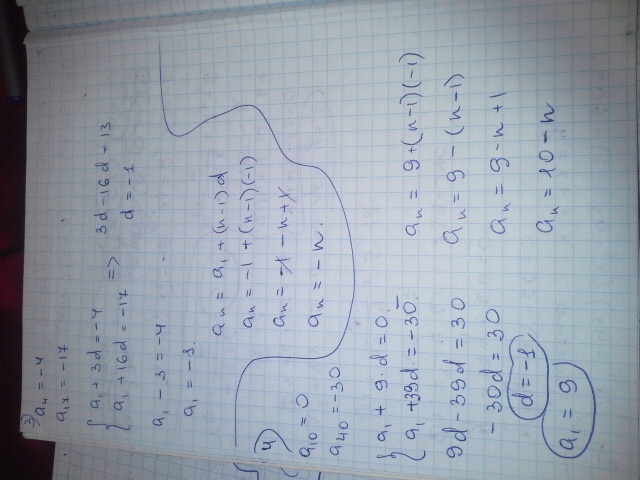 3) a₄ = -4
a₁₇ = -17
{ a₁ + 3d = -4
{ a₁ + 16d = -17 => 3d - 16d = 13
d = -1
a₁ - 3 = -4
a₁ = -1.
aₙ = a₁ + (n-1)d
aₙ = -1 + (n-1)(-1)
aₙ = -1 - n + 1
aₙ = -n.
4)
a₁₀ = 0
a₄₀ = -30
{ a₁ + 9·d = 0.
{ a₁ + 39d = -30.
9d - 39d = 30
-30d = 30
d = -1
a₁ = 9
aₙ = 9 + (n-1)(-1)
aₙ = 9 - (n-1)
aₙ = 9 - n + 1
aₙ = 10 - n